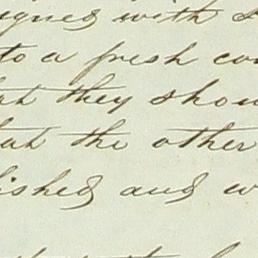 igned with
to a fresh con
at they shou
hat the other
lished and w